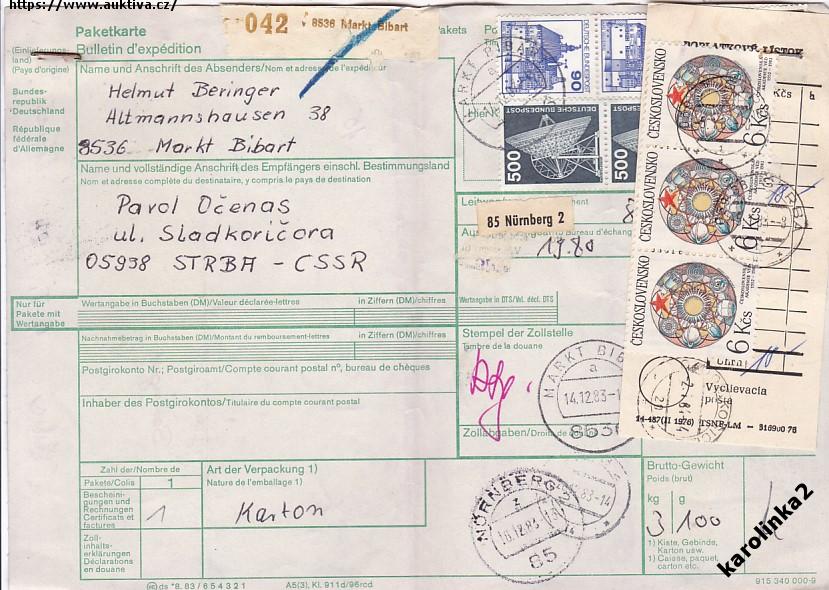 https://www.auktiva.cz/
Paketkarte
Bulletin d'expédition
042
8536 Markt Bibart
(Pays d'origine)
Name und Anschrift des Absenders/Nom et adresse de l'expéditeur
Helmut Beringer
Altmannshausen 38
8536 Markt Bibart
Bundes-
republik
Deutschland
République
fédérale
d'Allemagne
Name und vollständige Anschrift des Empfängers einschl. Bestimmungsland
Nom et adresse complète du destinataire, y compris le pays de destination
Pavol Očenas
ul. Sladkoričora
05938 STRBA - CSSR
DEUTSCHE BUNDESPOST
90
DEUTSCHE BUNDESPOST
500
500
ČESKOSLOVENSKO
6 Kčs
ČESKOSLOVENSKO
6 Kčs
ČESKOSLOVENSKO
6 Kčs
Kčs
85 Nürnberg 2
19.80
Nur für
Pakete mit
Wertangabe
Wertangabe in Buchstaben (DM)/Valeur déclarée-lettres
in Ziffern (DM)/chiffres
Wertangabe in DTS/Val. décl. DTS
Nachnahmebetrag in Buchstaben (DM)/Montant du remboursement-lettres
in Ziffern (DM)/chiffres
Postgirokonto Nr.; Postgiroamt/Compte courant postal n°, bureau de chèques
Inhaber des Postgirokontos/Titulaire du compte courant postal
Stempel der Zollstelle
Timbre de la douane
MARKT BIB
a
14.12.83-1
853
Zollabgaben/Droits de
Vyclievacia
pošta
14-487(II 1976) TSNP-LM - 316900 76
Zahl der/Nombre de
Pakete/Colis
1
Bescheini-
gungen und
Rechnungen
Certificats et
factures
1
Zoll-
inhalts-
erklärungen
Déclarations
en douane
Art der Verpackung 1)
Nature de l'emballage 1)
Karton
NÜRNBERG 2
z
16.12.83
85
83-14
Brutto-Gewicht
Poids (brut)
kg
g
3 100
1) Kiste, Gebinde,
Karton usw.
1) Caisse, paquet,
carton etc.
karolinka2
ds *8. 83 / 6 5 4 3 2 1
A5(3), Kl. 911d/96rcd
915 340 000-9